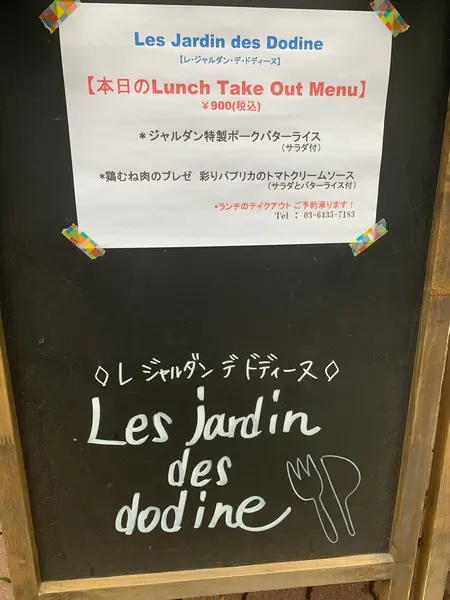 Les Jardin des Dodine
【レ・ジャルダン・デ・ドディーヌ】
【本日のLunch Take Out Menu】
￥900(税込)
*ジャルダン特製ポークバターライス
(サラダ付)
*鶏むね肉のブレゼ 彩りパプリカのトマトクリームソース
(サラダとバターライス付)
*ランチのテイクアウト ご予約承ります！
Tel ： 03-6435-7183
◇レ ジャルダン デ ドディーヌ◇
Les jardin
des
dodine